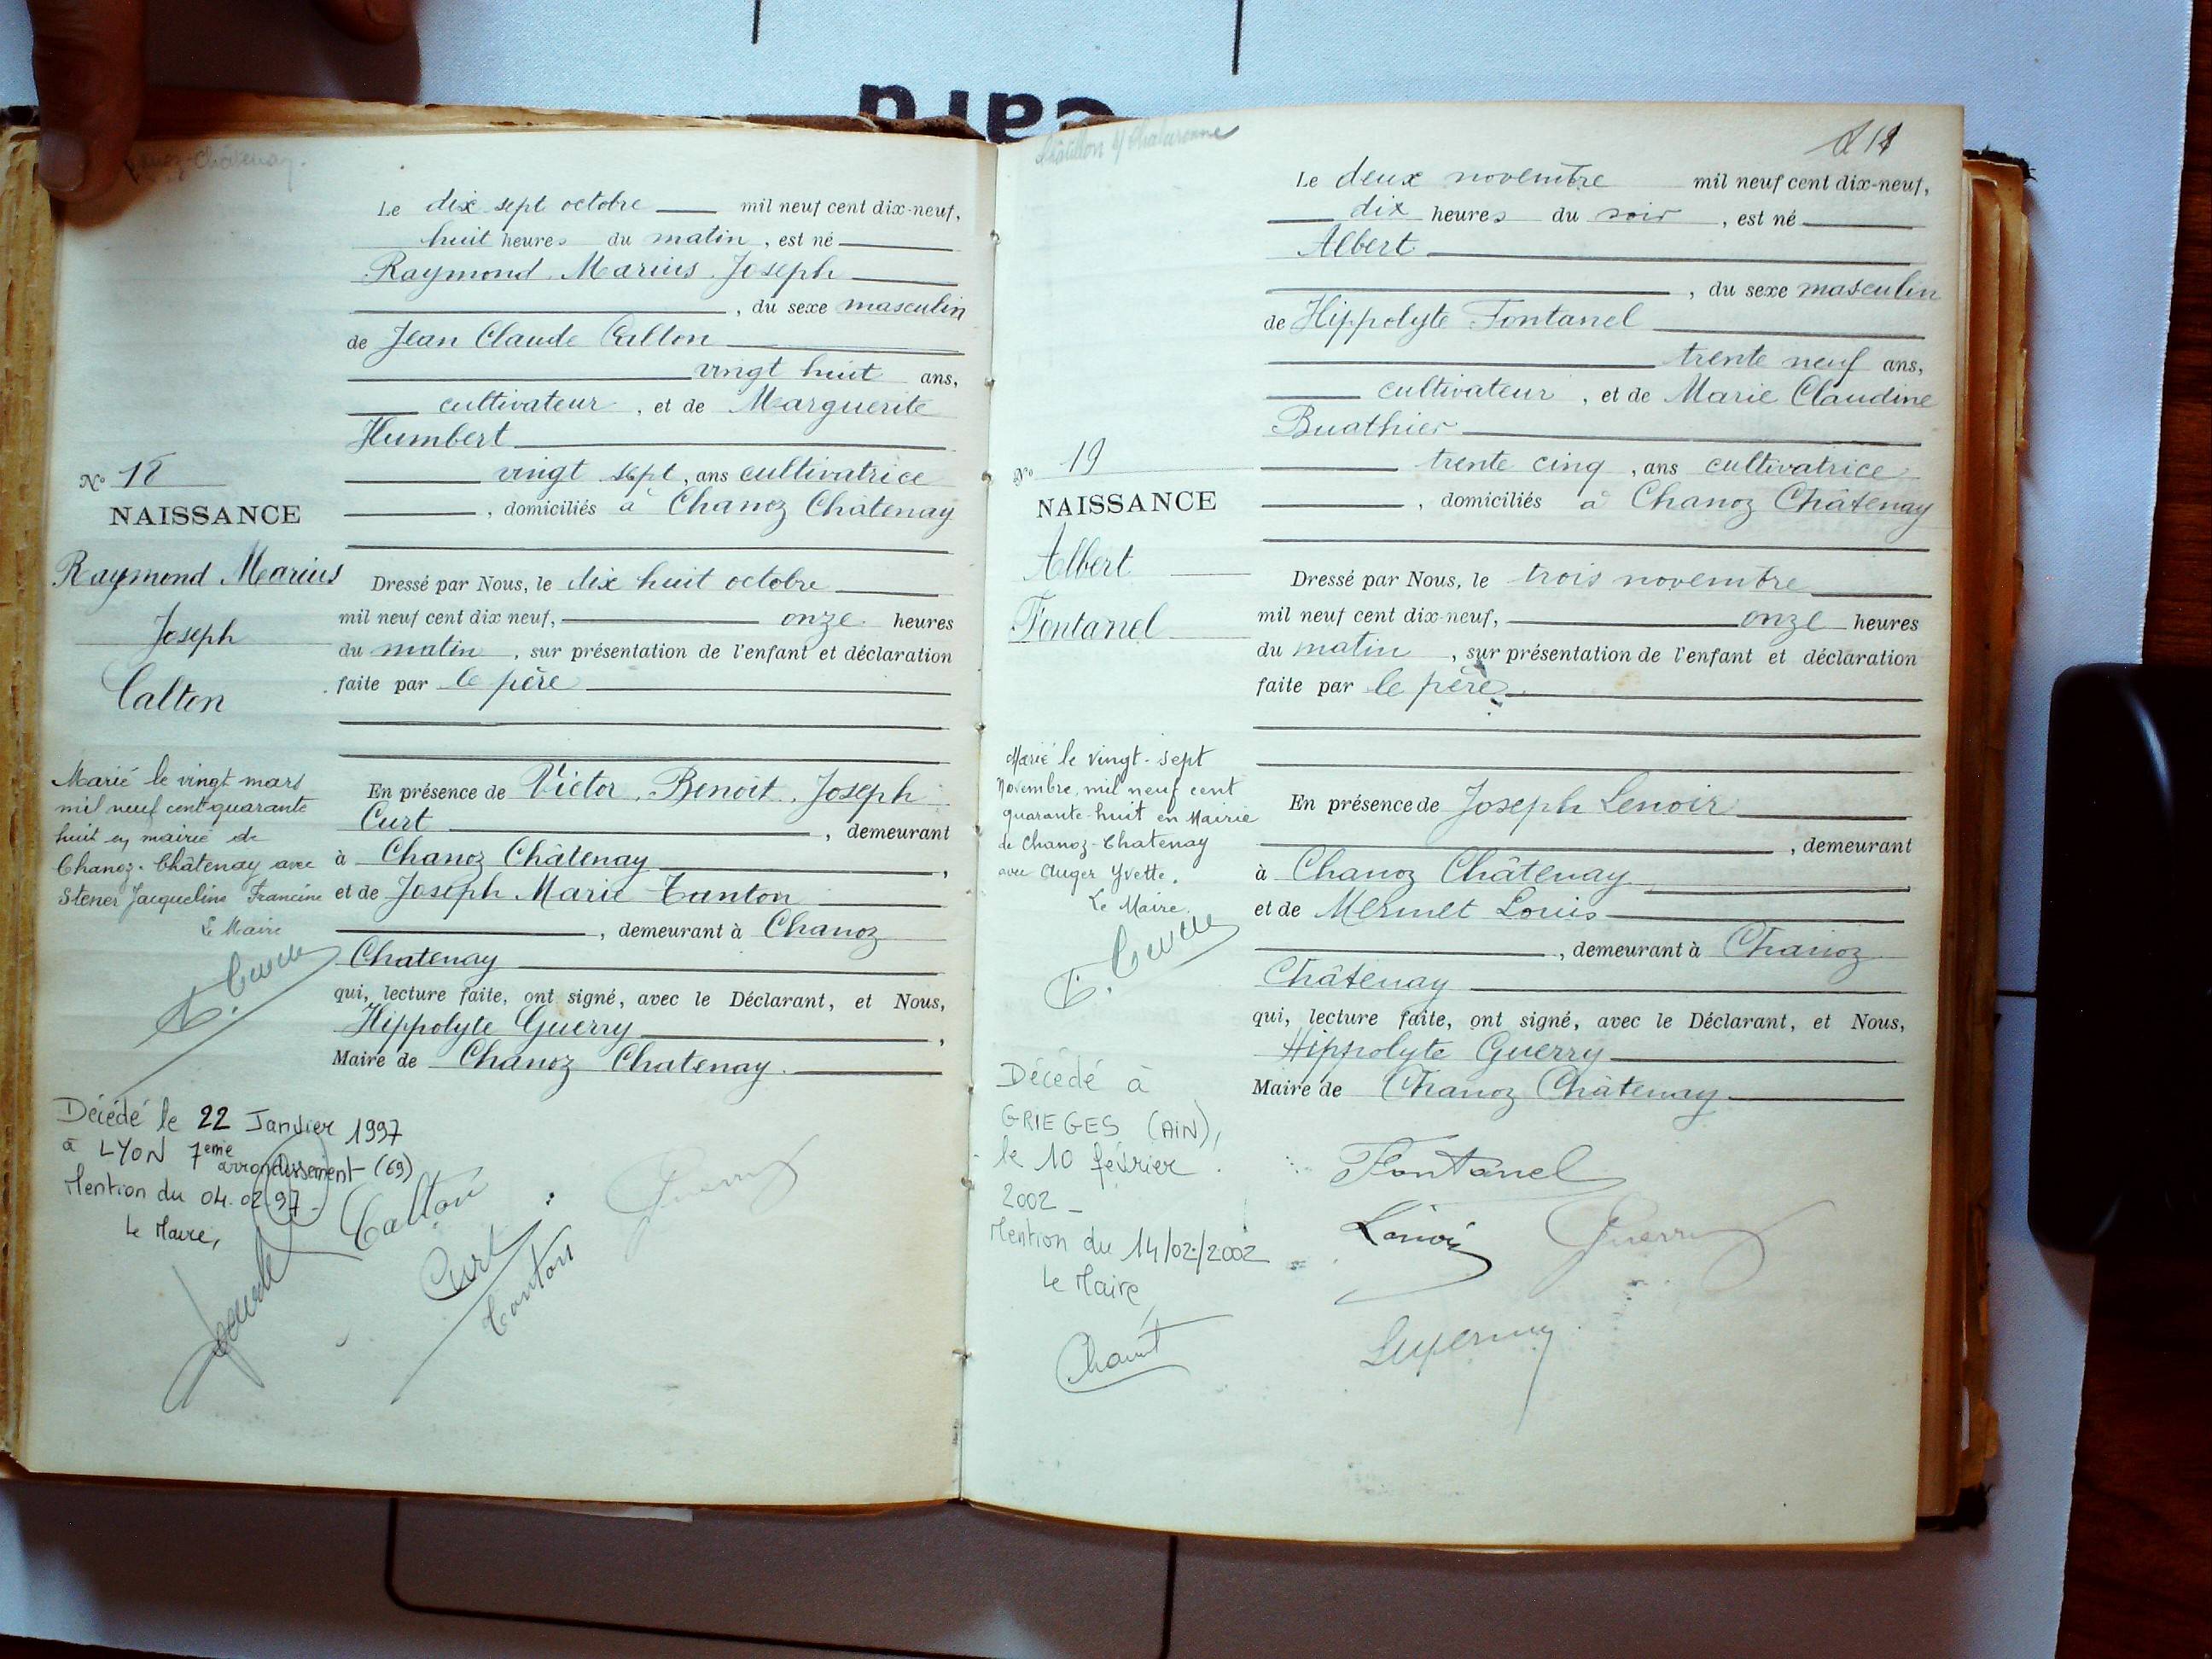 card
Chanoz-Châtenay.
Le dix sept octobre mil neuf cent dix-neuf,
huit heures du matin, est né
Raymond Marius Joseph
, du sexe masculin
de Jean Claude Calton
vingt huit ans,
cultivateur, et de Marguerite
Humbert
vingt sept, ans cultivatrice
, domiciliés à Chanoz Châtenay
N° 18
NAISSANCE
Raymond Marius
Joseph
Calton
Dressé par Nous, le dix huit octobre
mil neuf cent dix neuf, onze heures
du matin, sur présentation de l'enfant et déclaration
faite par le père
En présence de Victor, Benoit, Joseph
Curt, demeurant
à Chanoz Châtenay,
et de Joseph Marie Tanton
, demeurant à Chanoz
Chatenay
qui, lecture faite, ont signé, avec le Déclarant, et Nous,
Hippolyte Guerry,
Maire de Chanoz Chatenay.
Marié le vingt mars
mil neuf cent quarante
huit en mairie de
Chanoz-Châtenay avec
Stener Jacqueline Francine
Le Maire
Décédé le 22 Janvier 1997
à LYON 7eme
arrondissement (69)
Mention du 04.02.97.
Le Maire,
Calton
Curt
Tanton
Guerry
Châtillon s/ Chalaronne
Le deux novembre mil neuf cent dix-neuf,
dix heures du soir, est né
Albert
, du sexe masculin
de Hippolyte Fontanel
trente neuf ans,
cultivateur, et de Marie Claudine
Buathier
trente cinq, ans cultivatrice
, domiciliés à Chanoz Châtenay
N° 19
NAISSANCE
Albert
Fontanel
Dressé par Nous, le trois novembre
mil neuf cent dix-neuf, onze heures
du matin, sur présentation de l'enfant et déclaration
faite par le père
En présence de Joseph Lenoir
, demeurant
à Chanoz Châtenay
et de Mermet Louis
, demeurant à Chanoz
Châtenay
qui, lecture faite, ont signé, avec le Déclarant, et Nous,
Hippolyte Guerry
Maire de Chanoz Châtenay
Marié le vingt-sept
Novembre, mil neuf cent
quarante-huit en Mairie
de Chanoz-Chatenay
avec Auger Yvette.
Le Maire.
Décédé à
GRIEGES (AIN),
le 10 février
2002_
Mention du 14/02/2002
Le Maire
Fontanel
Lenoir
Guerry